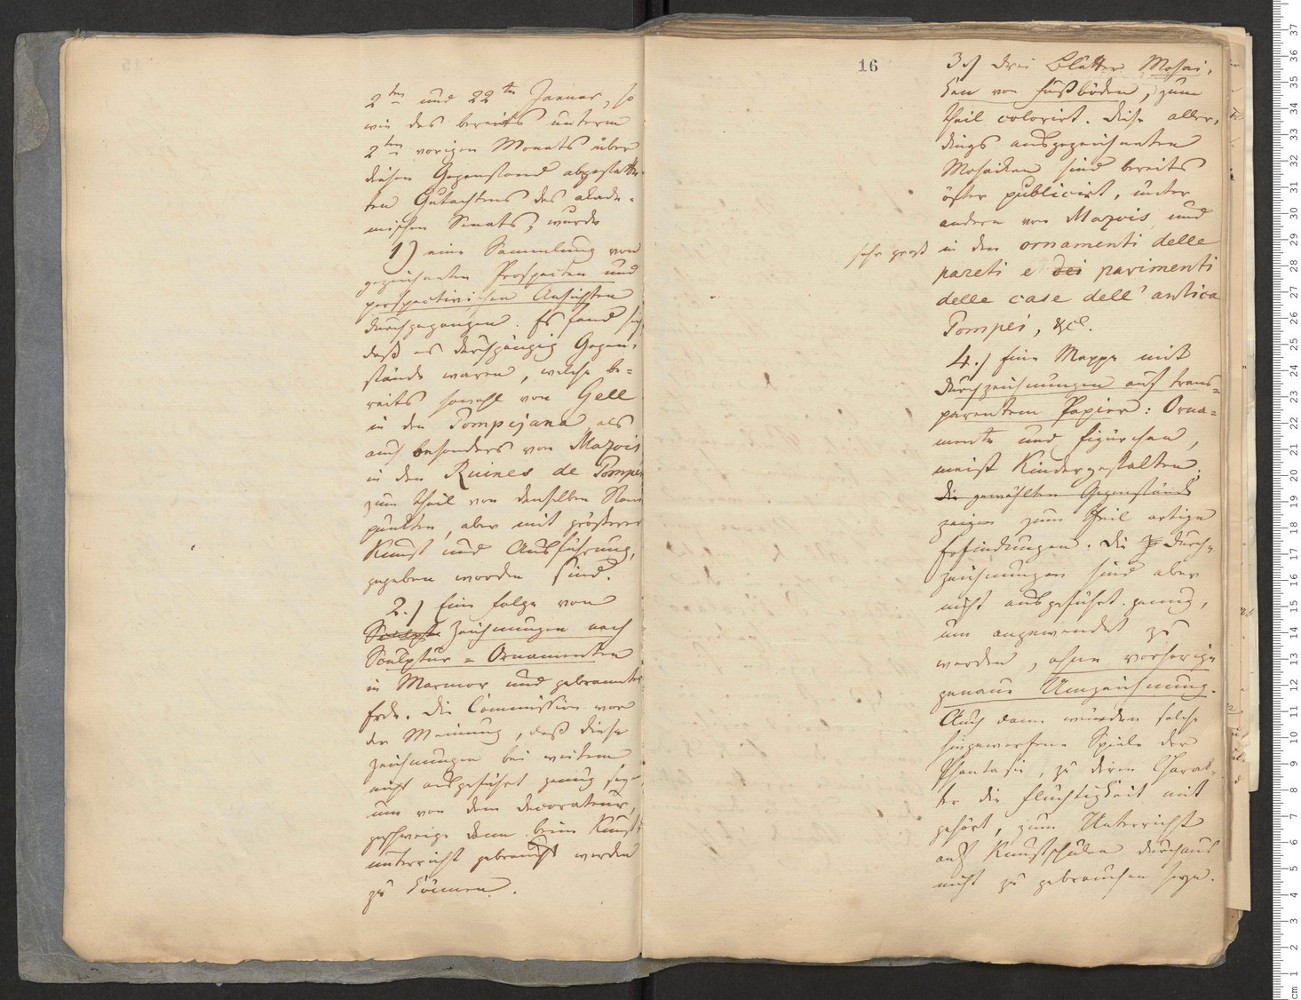 2ten und 22ten Januar, so
wie des bereits unterm
2ten vorigen Monats über
diesen Gegenstand abgestatte-
ten Gutachtens des akade-
mischen Senats, wurde
1) eine Sammlung von
gezeichneten Prospecten und
perspectivischen Ansichten
durchgegangen. Es fand sich
daß es durchgängig Gegen-
stände waren, welche be-
reits sowohl von Gell
in den Pompejana als
auch besonders von Mazois
in den Ruines de Pompei
zum Theil von denselben Stand
punkten, aber mit größerer
Kunst und Ausführung,
gegeben worden sind.
2.) Eine Folge von
Sculpt Zeichnungen nach
Sculptur-Ornamenten
in Marmor und gebrannter
Erde. Die Commission war
der Meinung, daß diese
Zeichnungen bei weitem
nicht ausgeführt genug seyen
um von dem Decorateur,
geschweige denn beim Kunst
unterricht gebraucht werden
zu können.
16
3.) drei Blätter Mosai-
ken von Fußböden, zum
Theil colorirt. Diese aller-
dings ausgezeichneten
Mosaiken sind bereits
öfter publicirt, unter
andern von Mazois und
sehr groß in den ornamenti delle
pareti e dei pavimenti
delle case dell' antica
Pompei, &c.
4.) Eine Mappe mit
Durchzeichnungen auf trans-
parentem Papier: Orna-
mente und Figürchen,
meist Kindergestalten.
Die gewählten Gegenstände
zeigen zum Theil artige
Erfindungen. Die Durch-
zeichnungen sind aber
nicht ausgeführt genug,
um angewendet zu
werden, ohne vorherige
genaue Umzeichnung.
Auch dann würden solche
hingeworfene Spiele der
Phantasie, zu deren Charak-
ter die Flüchtigkeit mit
gehört, zum Unterricht
auf Kunstschulen durchaus
nicht zu gebrauchen seyn.